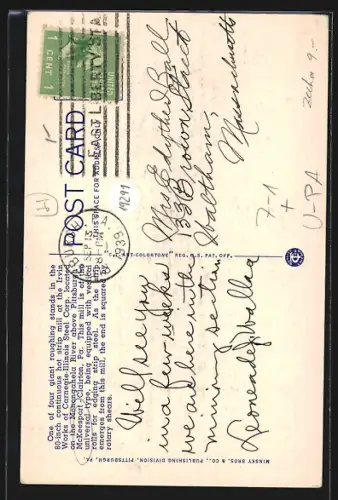 One of four giant roughing stands in the
80-inch continuous hot strip mill at the Irvin
Works of Carnegie-Illinois Steel Corp. located
on the Monongahela River above Pittsburgh
McKeesport-Clairton, Pa. This mill is of the
universal type, being equipped with vertical
rolls for edging strip steel. As the strip
emerges from this mill, the end is squared by
rotary shears.
POST CARD
THIS SPACE FOR ADDRESS ONLY
EAST LIBERTY STA
SEP 13
1939
UNITED
1 CENT 1
19291
C.T. ART-COLORTONE REG. U.S. PAT. OFF.
MINSKY BROS. & CO., PUBLISHING DIVISION, PITTSBURGH, PA.
Will see you
in a few weeks
we are here in the
mining section
Mrs Ball
33 Brown Street
Waltham,
Massachusetts
7-1
+
U-PA